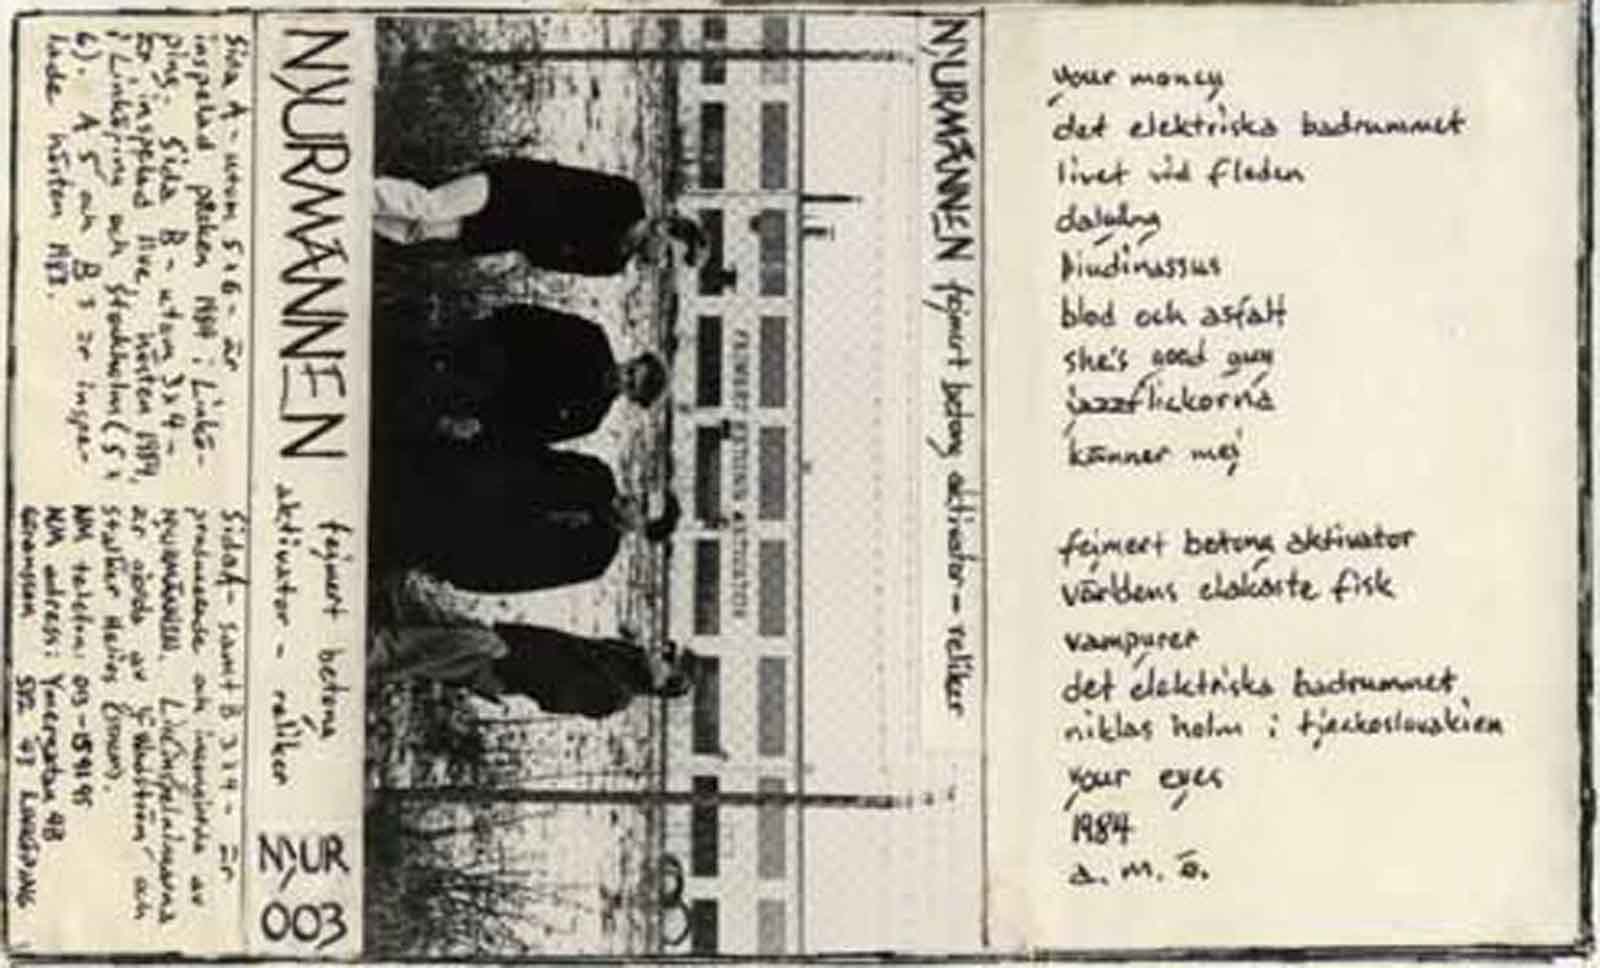 Sida A - utom 5 & 6 - är
inspelad påsken 1984 i Linkö-
ping. Sida B - utom 3 & 4 -
är inspelad live, hösten 1984,
i Linköping och Stockholm (5 &
6). A 5 och B 3 är inspe-
lade hösten 1983.
Sida A - samt B 3 & 4 - är
producerade och av
NJURMÄNNEN.
är av och
NM telefon: 013-154195
NM adress: Ymergatan 4B
582 47 LINKÖPING
NJURMÄNNEN
fejmert betong
aktivator - reliker
NJUR
003
FEJMERT BETONG AKTIVATOR
NJURMÄNNEN fejmert betong aktivator - reliker
your money
det elektriska badrummet
livet vid floden
dalgång
þiudinassus
blod och asfalt
she's good guy
jazzflickorna
känner mej
fejmert betong aktivator
världens elakaste fisk
vampyrer
det elektriska badrummet
niklas holm i tjeckoslovakien
your eyes
1984
a. m. ö.